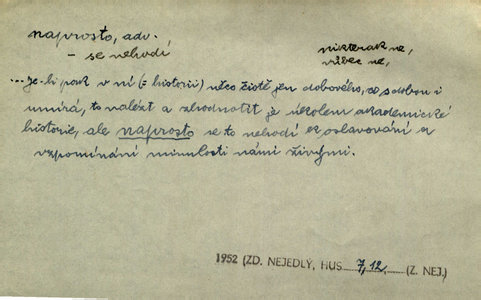 naprosto, adv.
– se nehodí
nikterak ne,
vůbec ne,
...je-li pak v ní (= historii) něco čistě jen dobového, co s dobou i
umírá, to nalézt a zhodnotit je úkolem akademické
historie, ale naprosto se to nehodí k oslavování a
vzpomínání minulosti námi živými.
1952 (ZD. NEJEDLÝ, HUS 7, 12, (Z. NEJ.)